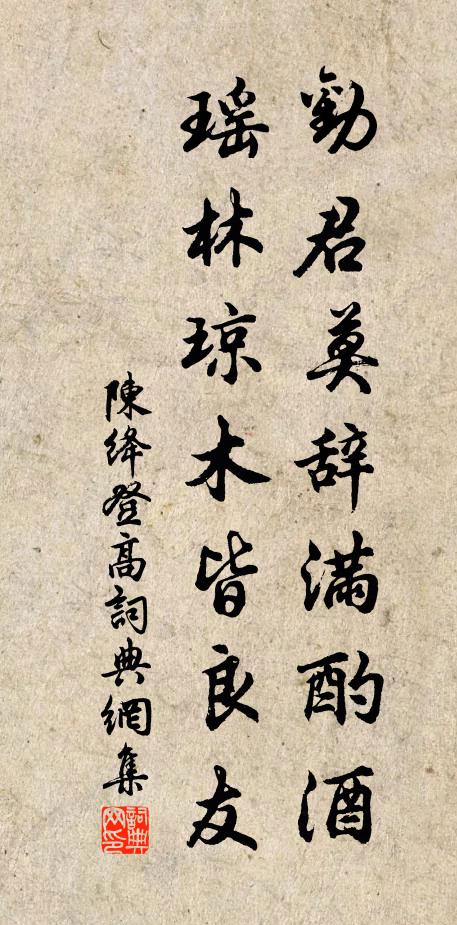 勸君莫辞滿酌酒
瑶林琼木皆良友
陳绛登高詞典網集
詞典网印